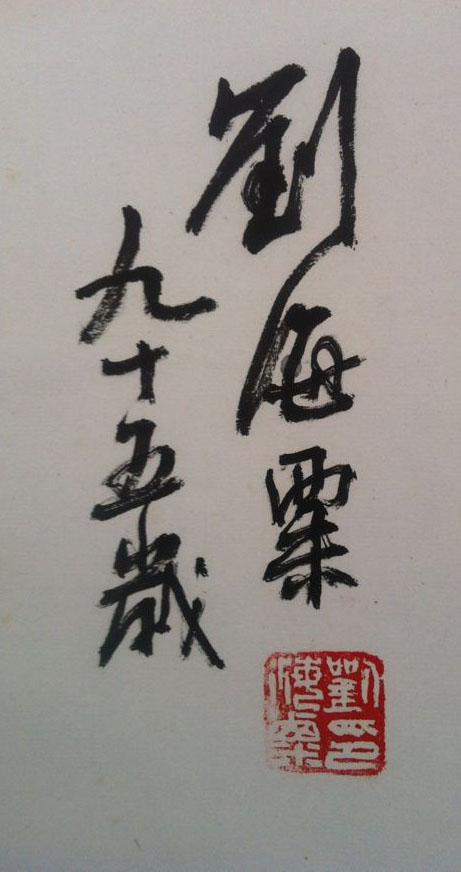 劉海粟
九十五歲
劉海粟印